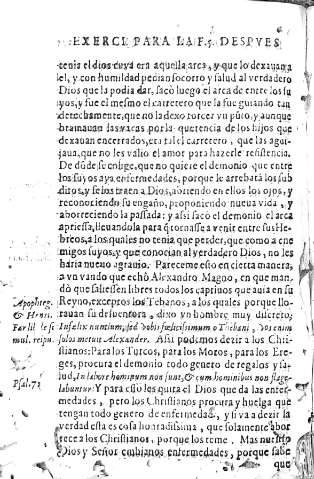 EXERCI. PARA LA F. DESPVES
tenia el dios cuya era aquella arca, y que lo dexauan a
el, y con humildad pedian socorro y salud al verdadero
Dios que la podia dar, sacò luego el arca de entre los su
yos, y fue el mesmo el carretero que la fue guiando tan
derechamente, que no la dexo torcer vn puto, y aunque
bramauan las vacas por la querencia de los hijos que
dexauan encerrados, era tal el carretero, que las agui-
jaua, que no les valio el amor para hazerle resistencia.
De dõde se insigue, que no quiere el demonio que entre
los suyos aya enfermedades, porque le arrebata los sub
ditos, y se los traen a Dios, abriendo en ellos los ojos, y
reconociendo su engaño, proponiendo nueua vida, y
aborreciendo la passada: y assi sacò el demonio el arca
apriessa, lleuandola para q̃ tornasse a venir entre sus He-
breos, a los quales no tenia que perder, que como a ene
migos suyos, y que conocian al verdadero Dios, no les
haria nueuo agrauio. Pareceme esto en cierta manera,
a vn vando que echò Alexandro Magno, en que man-
dò que saliessen libres todos los captiuos que auia en su
Reyno, excepto los Tebanos, a los quales porque llo-
rauan su desuentura, dixo vn hombre muy discreto:
Infelix nuntium, sed vobis fœlicissimum o Thebani, vos enim
solos metuit Alexander. Assi podemos dezir a los Chri-
stianos: Para los Turcos, para los Moros, para los Ere-
ges, procura el demonio todo genero de regalos y sa-
lud, In labore hominum non sunt, & cum hominibus non flage-
labuntur: Y para esso les quita el Dios que da las enfer-
medades, pero los Christianos procura y huelga que
tengan todo genero de enfermedad, y si va a dezir la
verdad essa es cosa honradissima, que solamente abor
rece a los Christianos, porque los teme. Mas nuestro
Dios y Señor embianos enfermedades, porque sabe
que
Apophteg.
& Henri.
Far lib. le si
mul. reipu.
Psal. 72